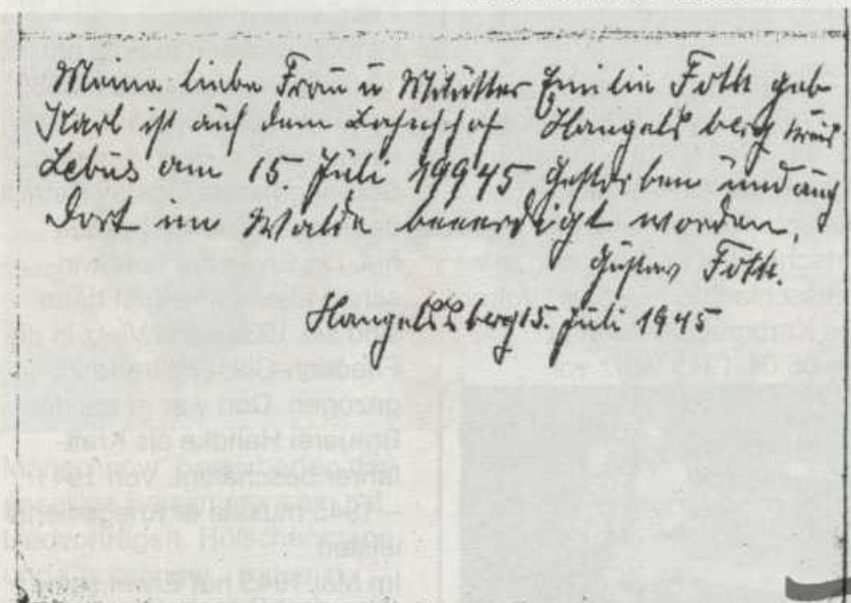 Meine liebe Frau u Mitutter Emilie Foth geb
Karl ist auf dem Bahnhof Hangels berg kreis
Lebus am 15. Juli 19945 gestorben und auch
dort im Walde beeerdigt worden,
Gustav Foth.
Hangelsberg 15. Juli 1945